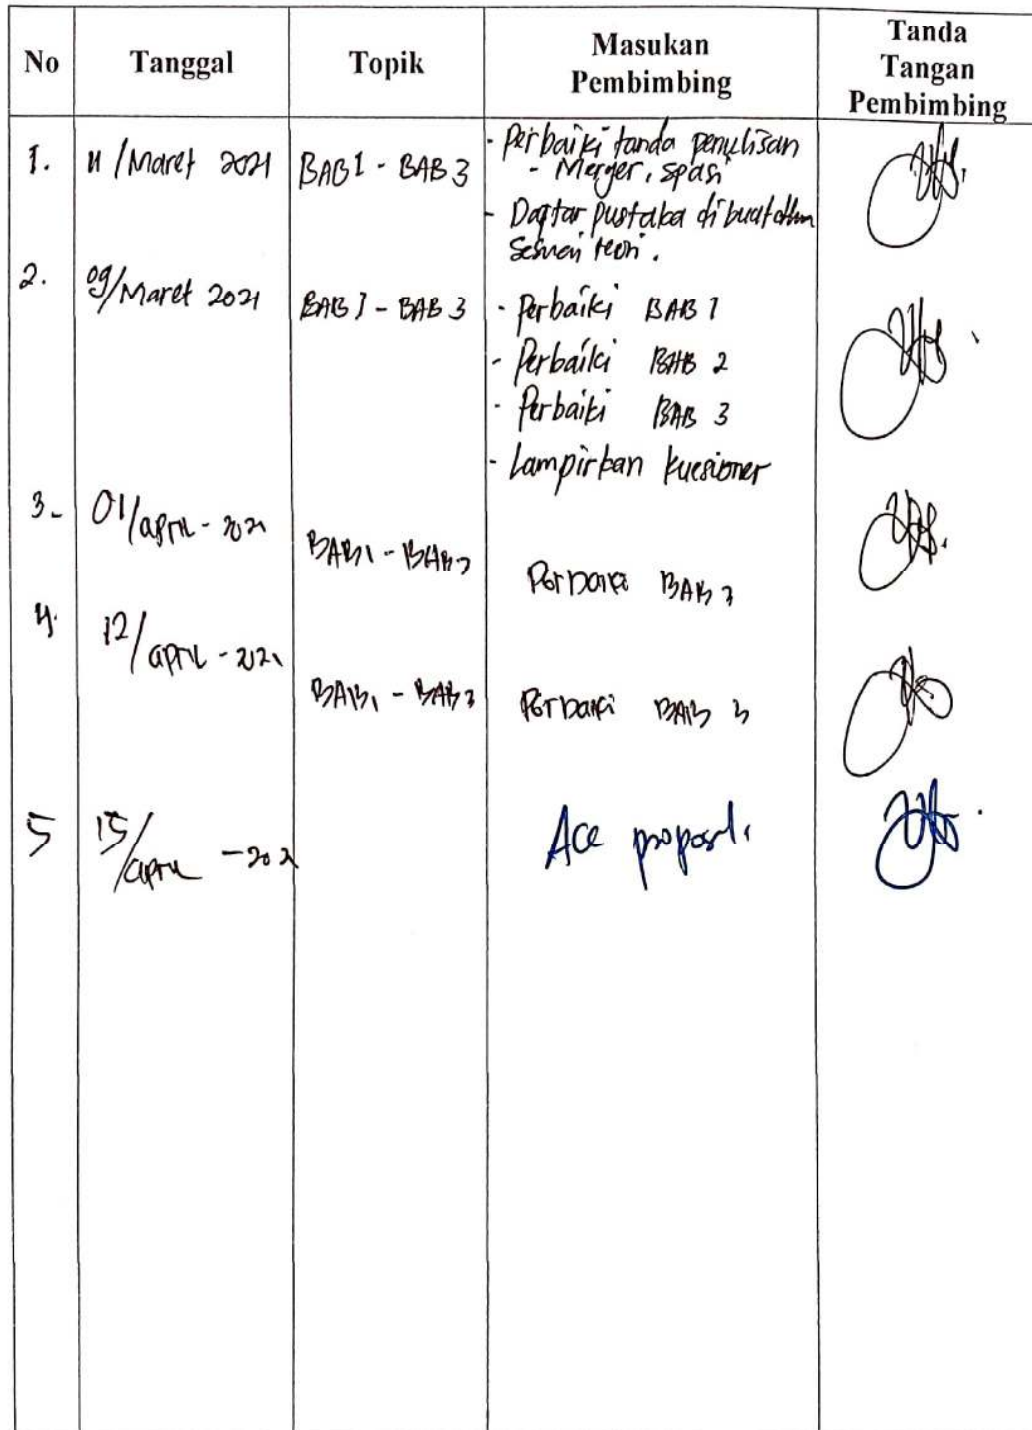 No Tanggal Topik Masukan Pembimbing Tanda Tangan Pembimbing
1. 11/Maret 2021 BAB I - BAB 3 - Perbaiki tanda penulisan
- Merger, spasi
- Daftar pustaka dibuat
sesuai teori.
2. 09/Maret 2021 BAB I - BAB 3 - Perbaiki BAB 1
- Perbaiki BAB 2
- Perbaiki BAB 3
- Lampirkan kuesioner
3- 01/april - 2021 BAB 1 - BAB 3 Perbaiki BAB 3
4. 12/april - 2021 BAB 1 - BAB 3 Perbaiki BAB 3
5 15/april - 202 Acc proposal.